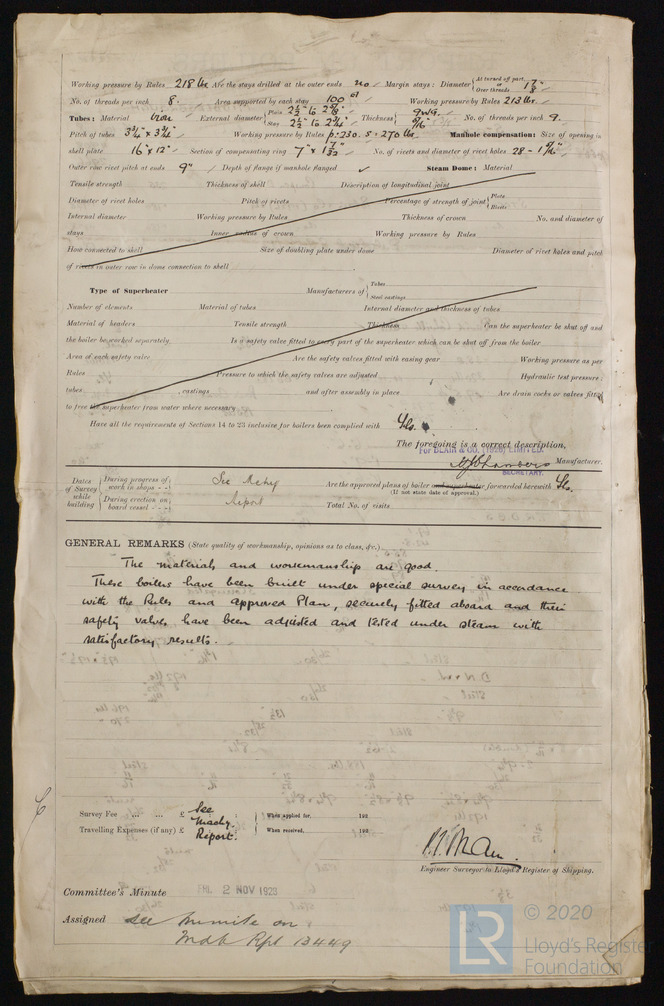 Working pressure by Rules 218 lbs Are the stays drilled at the outer ends no Margin stays: Diameter { At turned off part, or Over threads 1 7/8"
No. of threads per inch 8. Area supported by each stay 100 Working pressure by Rules 213 lbs.
Tubes: Material Iron External diameter { Plain 2 1/2" to Stay 2 1/2" to 2 1/4" Thickness { 9 WG. 5/16" No. of threads per inch 9.
Pitch of tubes 3 3/4" x 3 3/4" Working pressure by Rules p. 230. s. 270 lbs. Manhole compensation: Size of opening in
shell plate 16" x 12" Section of compensating ring 7" x 1 7/32 No. of rivets and diameter of rivet holes 28 - 1 9/16"
Outer row rivet pitch at ends 9" Depth of flange if manhole flanged Steam Dome: Material
Tensile strength Thickness of shell Description of longitudinal joint
Diameter of rivet holes Pitch of rivets Percentage of strength of joint { Plate Rivets
Internal diameter Working pressure by Rules Thickness of crown No. and diameter of
stays Inner radius of crown Working pressure by Rules
How connected to shell Size of doubling plate under dome Diameter of rivet holes and pitch
of rivets in outer row in dome connection to shell
Type of Superheater Manufacturers of { Tubes Steel castings
Number of elements Material of tubes Internal diameter and thickness of tubes
Material of headers Tensile strength Thickness Can the superheater be shut off and
the boiler be worked separately Is a safety valve fitted to every part of the superheater which can be shut off from the boiler
Area of each safety valve Are the safety valves fitted with easing gear Working pressure as per
Rules Pressure to which the safety valves are adjusted Hydraulic test pressure:
tubes , castings and after assembly in place Are drain cocks or valves fitted
to free the superheater from water where necessary
Have all the requirements of Sections 14 to 23 inclusive for boilers been complied with Yes.
The foregoing is a correct description,
For BLAIR & CO. (1926) LIMITED.
Chambers Manufacturer.
SECRETARY.
Dates of Survey while building { During progress of work in shops - - During erection on board vessel - - - See Mchy Report
Are the approved plans of boiler and superheater forwarded herewith Yes.
(If not state date of approval.)
Total No. of visits
GENERAL REMARKS (State quality of workmanship, opinions as to class, &c.)
The materials and workmanship are good.
These boilers have been built under special survey in accordance
with the Rules and approved Plan, securely fitted aboard and their
safety valves have been adjusted and tested under steam with
satisfactory results.
Survey Fee ... ... £ See When applied for, 192
Machy.
Travelling Expenses (if any) £ Report. When received, 192
Engineer Surveyor to Lloyd's Register of Shipping.
Committee's Minute FRI. 2 NOV 1923
Assigned See minute on
Mdb Rpt 13449
© 2020
LR Lloyd's Register
Foundation